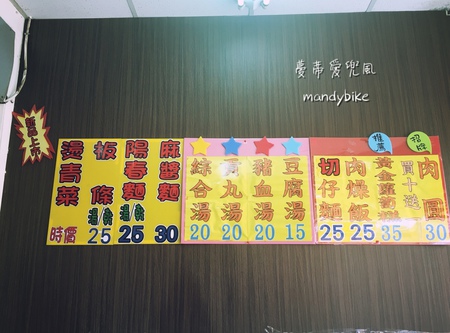 曼蒂愛兜風
mandybike
推薦
招牌
肉圓
30
買十送一
黃金蘿蔔糕
35
肉燥飯
25
切仔麵
25
豆腐湯
15
豬血湯
20
貢丸湯
20
綜合湯
20
麻醬麵
30
陽春麵
湯/乾
25
板條
湯/乾
25
燙青菜
時價